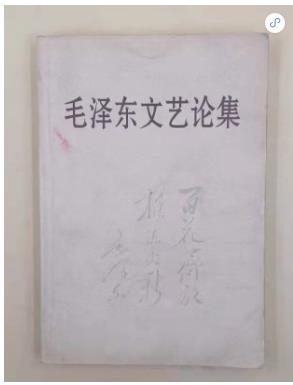 毛泽东文艺论集
百花齐放
推陈出新
毛泽东